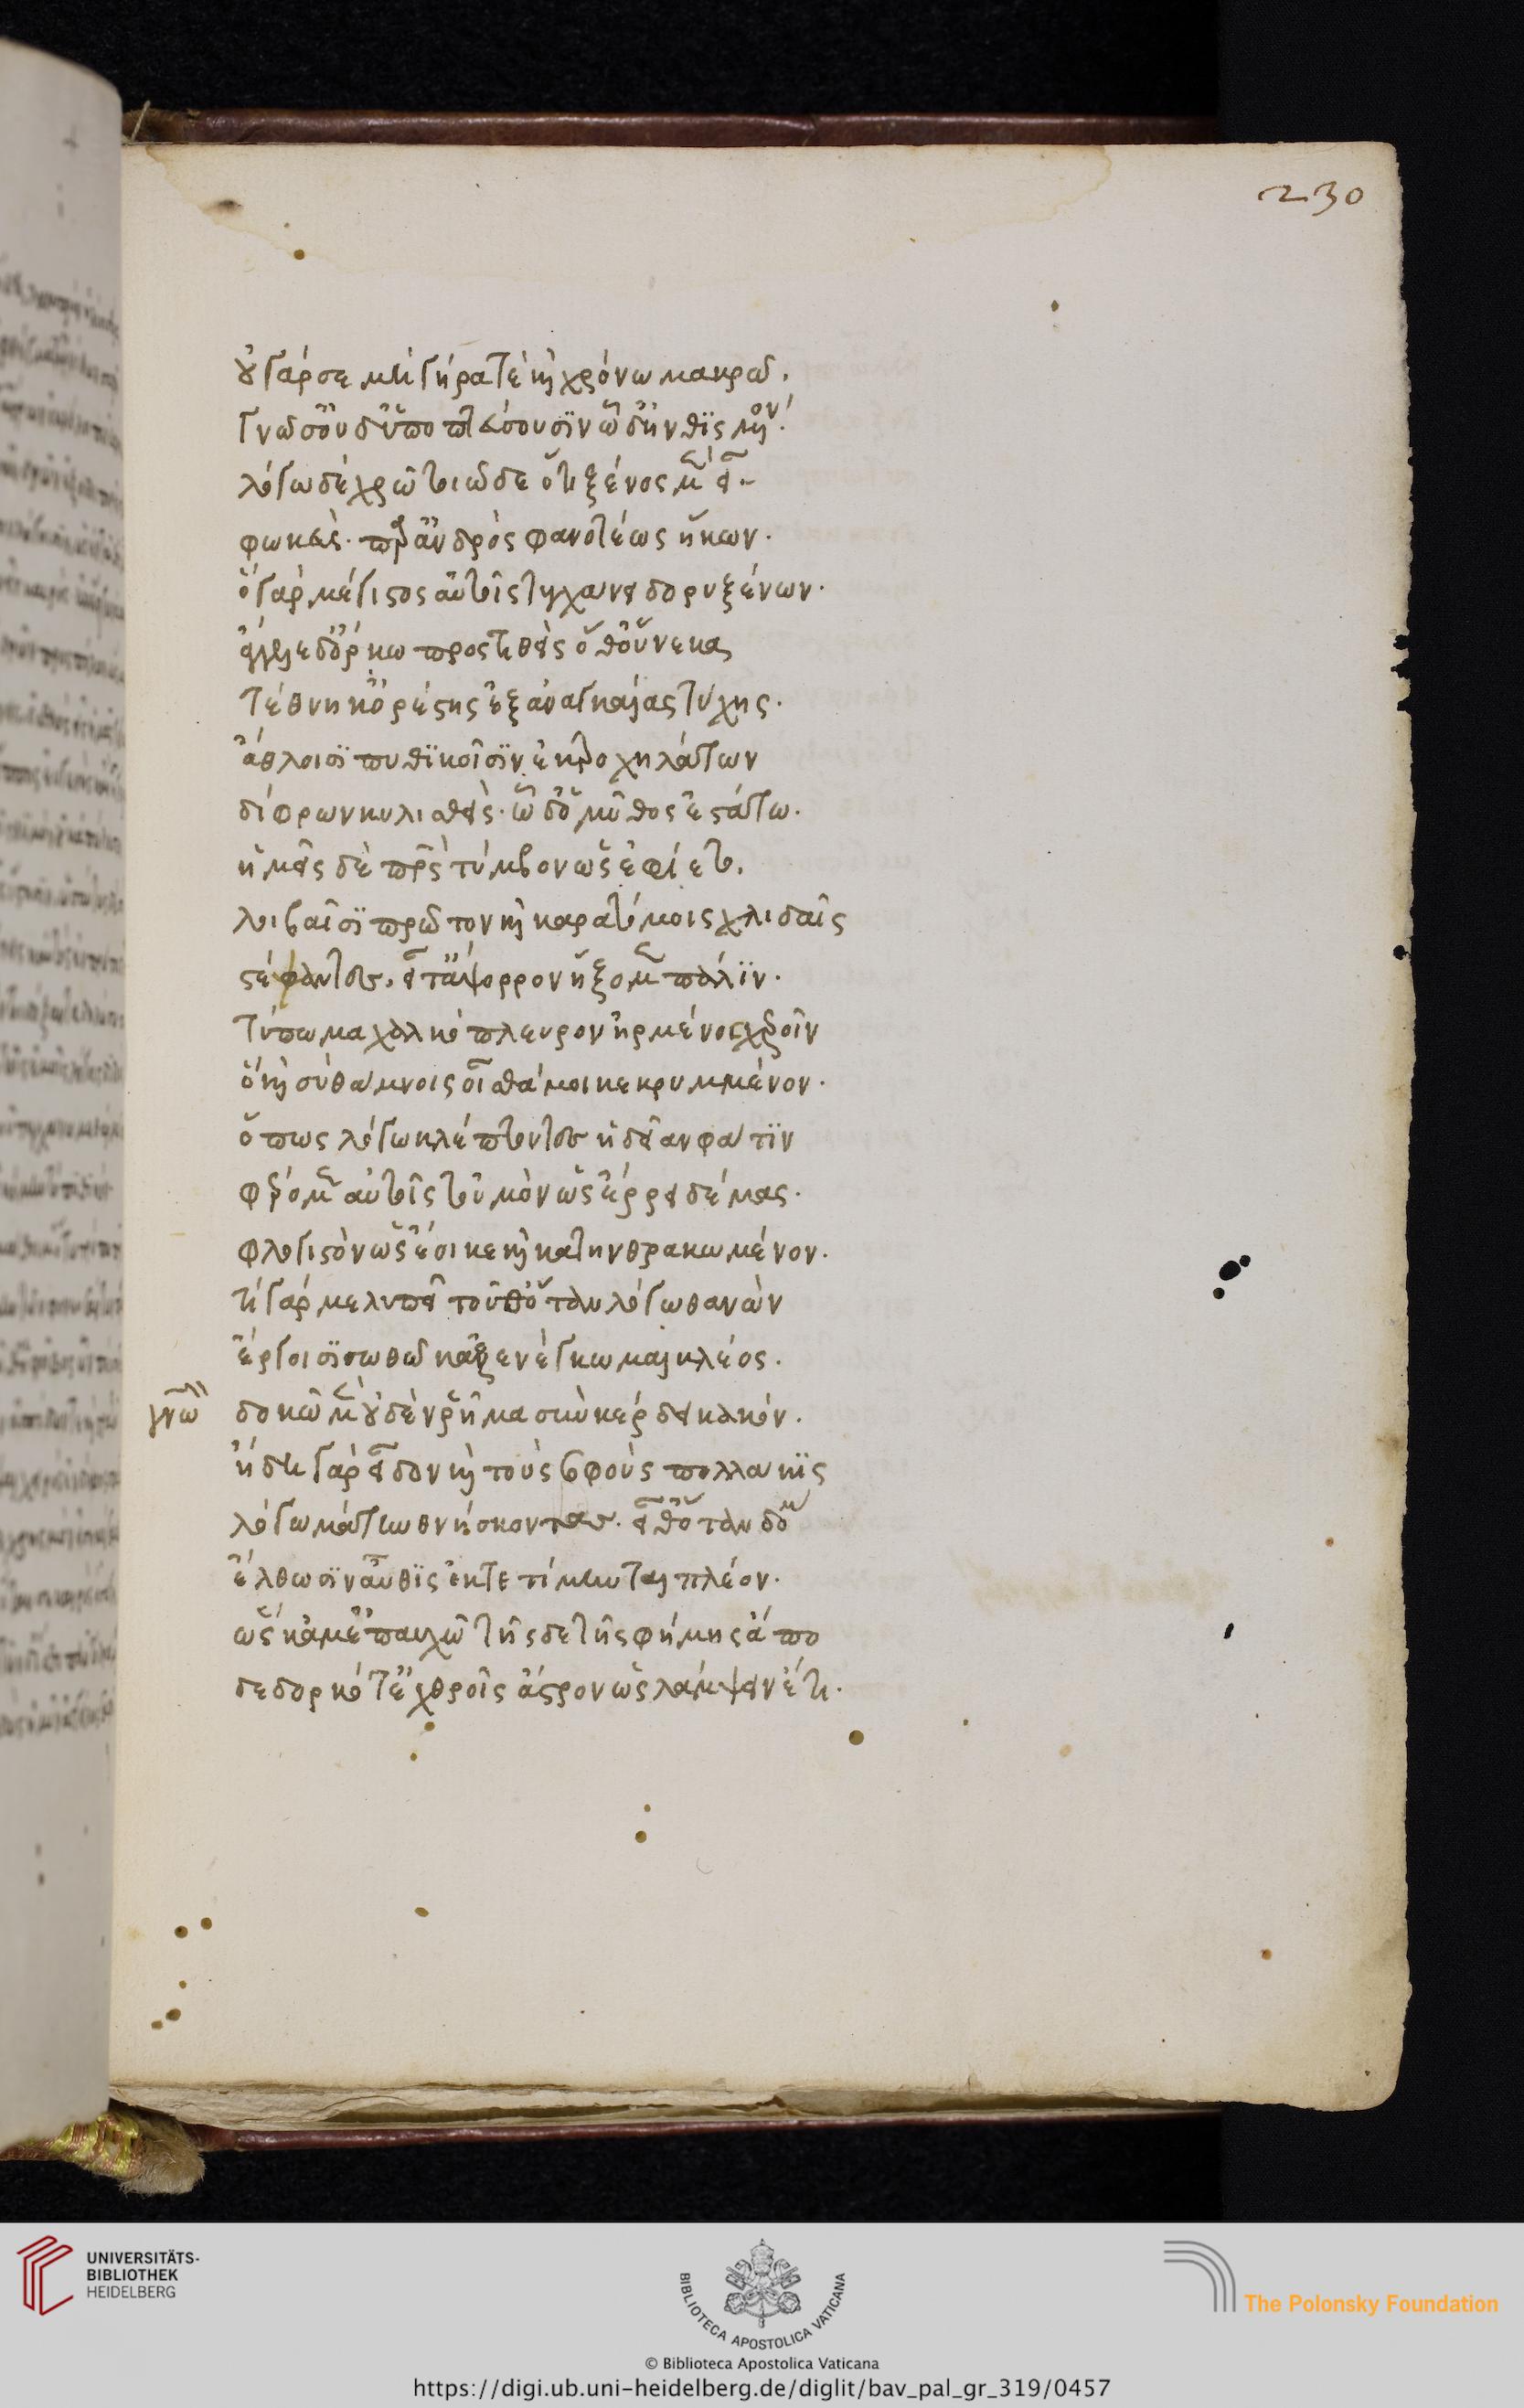 230
οὐ γάρ σε μὴ γήρα τὲ καὶ χρόνω μακρῶ.
γνῶσ' οὐδ' ὑποπτεύσουσϊν ὧδ' ἠνθϊσμένον.
λόγω δὲ χρῶ τοιῶδε ὅτι ξένος μὲν εἶ.
φωκεὺς. παρ' ἀνδρὸς φανοτέως ἥκων.
ὁ γὰρ μέγιστος αὐτοῖς τυγχάνει δορυξένων.
ἄγγελλε δ' ὅρκω προστιθεὶς ὁθοὔνεκα
τέθνηκ' ὀρέστης ἐξ ἀναγκαίας τύχης.
ἄθλοισϊ πυθϊκοῖσϊν ἐκ τροχηλάτων
δίφρων κυλισθεὶς. ὧδ' ὁ μῦθος ἑστάτω.
ἡμεῖς δὲ πρς τύμβον ὡς ἐφίετο.
λοιβαῖσϊ πρῶτον καὶ καρατόμοις χλιδαῖς
στέφαντες. εἶτ' ἄψορρον ἥξομεν πάλϊν.
τύπωμα χαλκόπλευρον ἠρμένοι χεροῖν
ὃ καὶ σὺ θάμνοις οἶσθά μοι κεκρυμμένον.
ὅπως λόγω κλέπτοντες ἡδεῖαν φάτϊν
φέρομεν αὐτοῖς τοὐμὸν ὡς ἔρρει δέμας.
φλογιστὸν ὡς ἔοικε καὶ κατηνθρακωμένον.
τί γάρ με λυπεῖ τοῦθ' ὅταν λόγω θανὼν
ἔργοισϊ σωθῶ κἀξενέγκωμαι κλέος.
γνώ δοκῶ μὲν οὐδὲν ῥῆμα σὺν κέρδει κακόν.
ἤδη γὰρ εἶδον καὶ τοὺς σοφοὺς πολλάκϊς
λόγω μάτην θνήσκοντας. εἶθ' ὅταν δόμους
ἔλθωσϊν αὖθϊς ἐκτετίμηνται πλέον.
ὡς κἀμ' ἐπαυχῶ τῆσδε τῆς φήμης ἄπο
δεδορκότ' ἐχθροῖς ἄστρον ὡς λάμψειν ἔτι.
UNIVERSITÄTS-
BIBLIOTHEK
HEIDELBERG
BIBLIOTECA APOSTOLICA VATICANA
The Polonsky Foundation
© Biblioteca Apostolica Vaticana
https://digi.ub.uni-heidelberg.de/diglit/bav_pal_gr_319/0457